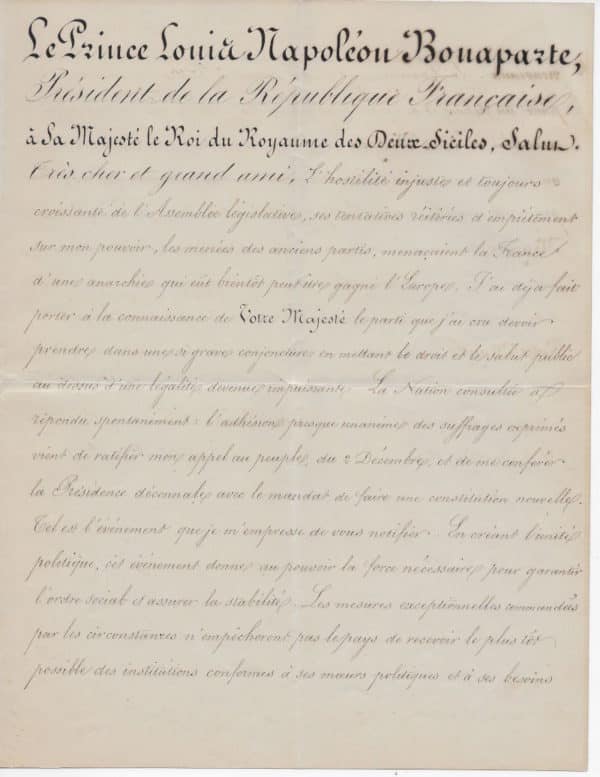 Le Prince Louis Napoléon Bonaparte,
Président de la République Française,
à Sa Majesté le Roi du Royaume des Deux-Siciles, Salut.
Très cher et grand ami, L'hostilité injuste et toujours
croissante de l'Assemblée législative, ses tentatives réitérées d'empiètement
sur mon pouvoir, les menées des anciens partis, menaçaient la France
d'une anarchie qui eût bientôt peut être gagné l'Europe. J'ai déja fait
porter à la connaissance de Votre Majesté le parti que j'ai cru devoir
prendre dans une si grave conjoncture en mettant le droit et le salut public
au dessus d'une légalité devenue impuissante. La Nation consultée a
répondu spontanément : l'adhésion presque unanime des suffrages exprimés
vient de ratifier mon appel au peuple, du 2 Décembre, et de me conférer
la Présidence décennale avec le mandat de faire une constitution nouvelle.
Tel est l'événement que je m'empresse de vous notifier. En créant l'unité
politique, cet événement donne au pouvoir la force nécessaire pour garantir
l'ordre social et assurer la stabilité. Les mesures exceptionnelles commandées
par les circonstances n'empêcheront pas le pays de recevoir le plus tôt
possible des institutions conformes à ses mœurs politiques et à ses besoins